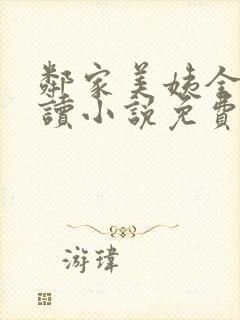 鄰家美姨全
讀小説免費
游瑋